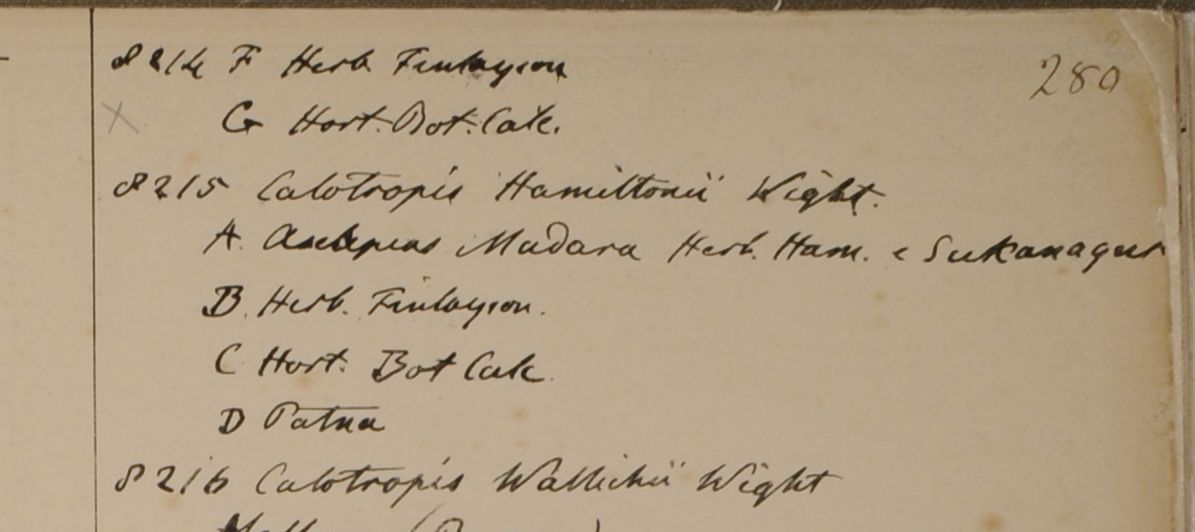 8214 F Herb Finlayson
280
G Hort. Bot. Calc.
8215 Calotropis Hamiltonii Wight.
A. Asclepias Madara Herb. Ham. e Sukanagur
B. Herb. Finlayson.
C Hort. Bot Calc.
D Patna
8216 Calotropis Wallichii Wight